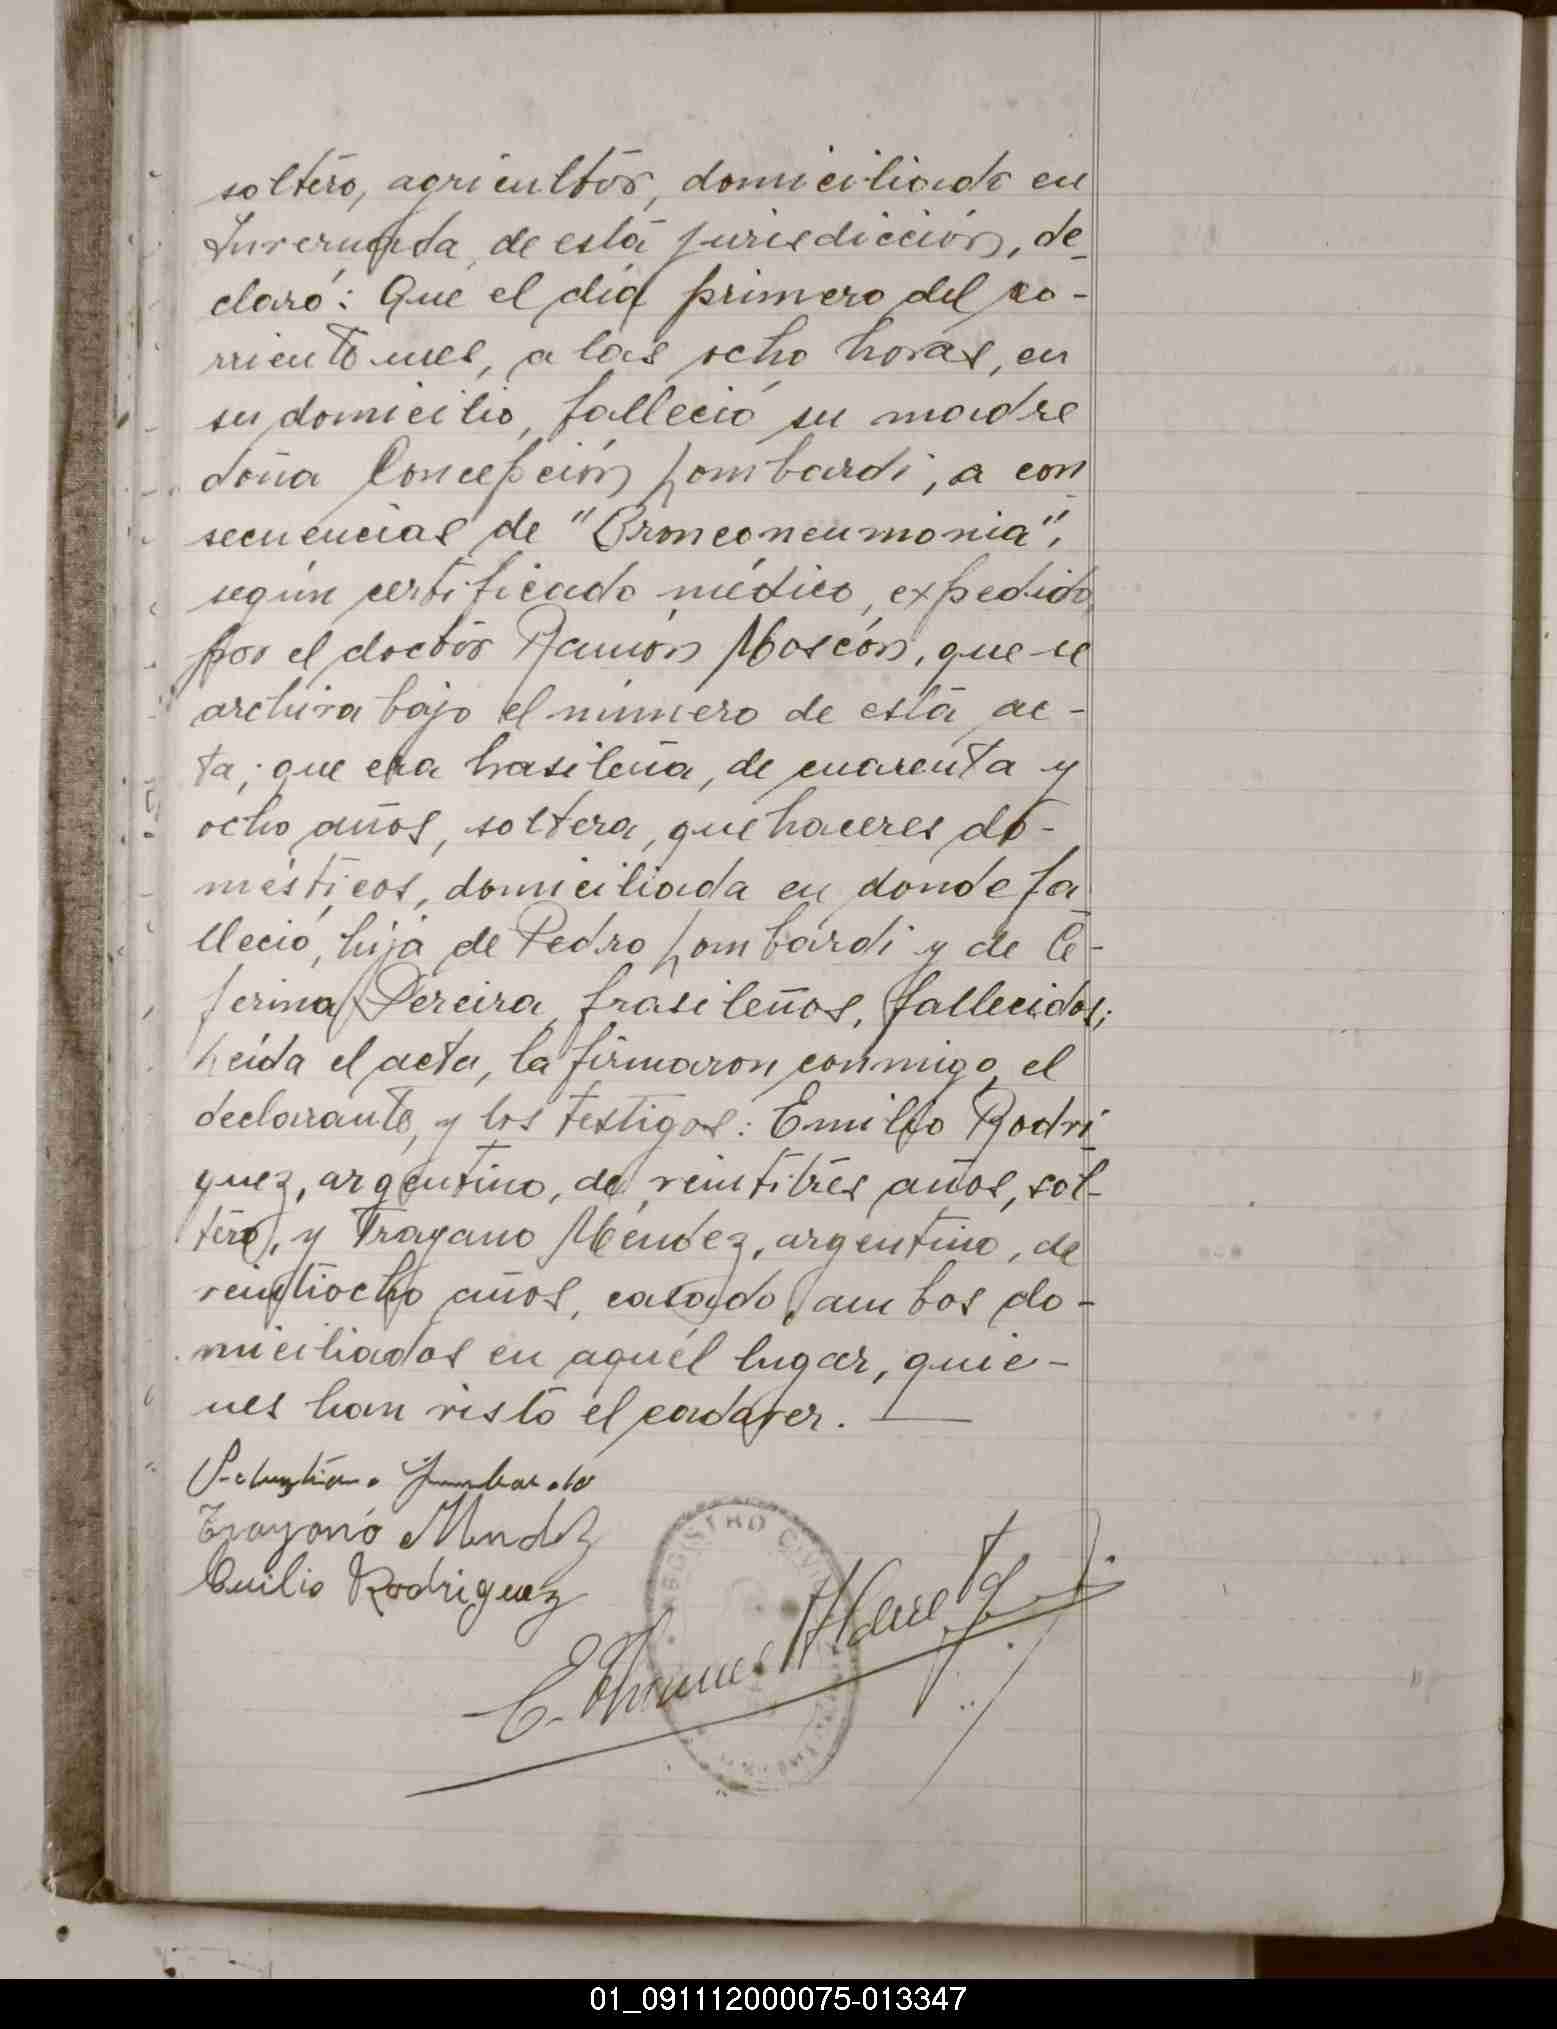 soltero, agricultor, domiciliado en
Invernada, de está jurisdicción, de-
claró: Que el día primero del co-
rriente mes, a las ocho horas, en
su domicilio, falleció su madre
doña Concepción Lombardi, a con
secuencias de "Bronconeumonia",
según certificado médico, expedido
por el doctor Ramón Moscón, que se
archiva bajo el número de está ac-
ta; que era brasileña, de cuarenta y
ocho años, soltera, quehaceres do-
mésticos, domiciliada en donde fa
lleció, hija de Pedro Lombardi y de Ce-
ferina Pereira, brasileños, fallecidos;
Leída el acta, la firmaron conmigo, el
declarante, y los testigos: Emilio Rodri
guez, argentino, de veintitrés años, sol-
tero, y Trayano Méndez, argentino, de
veintiocho años, casado, ambos do-
miciliados en aquél lugar, quie-
nes han visto el cadaver.
Trayano Mendez
Emilio Rodriguez
REGISTRO CIVIL
01_091112000075-013347